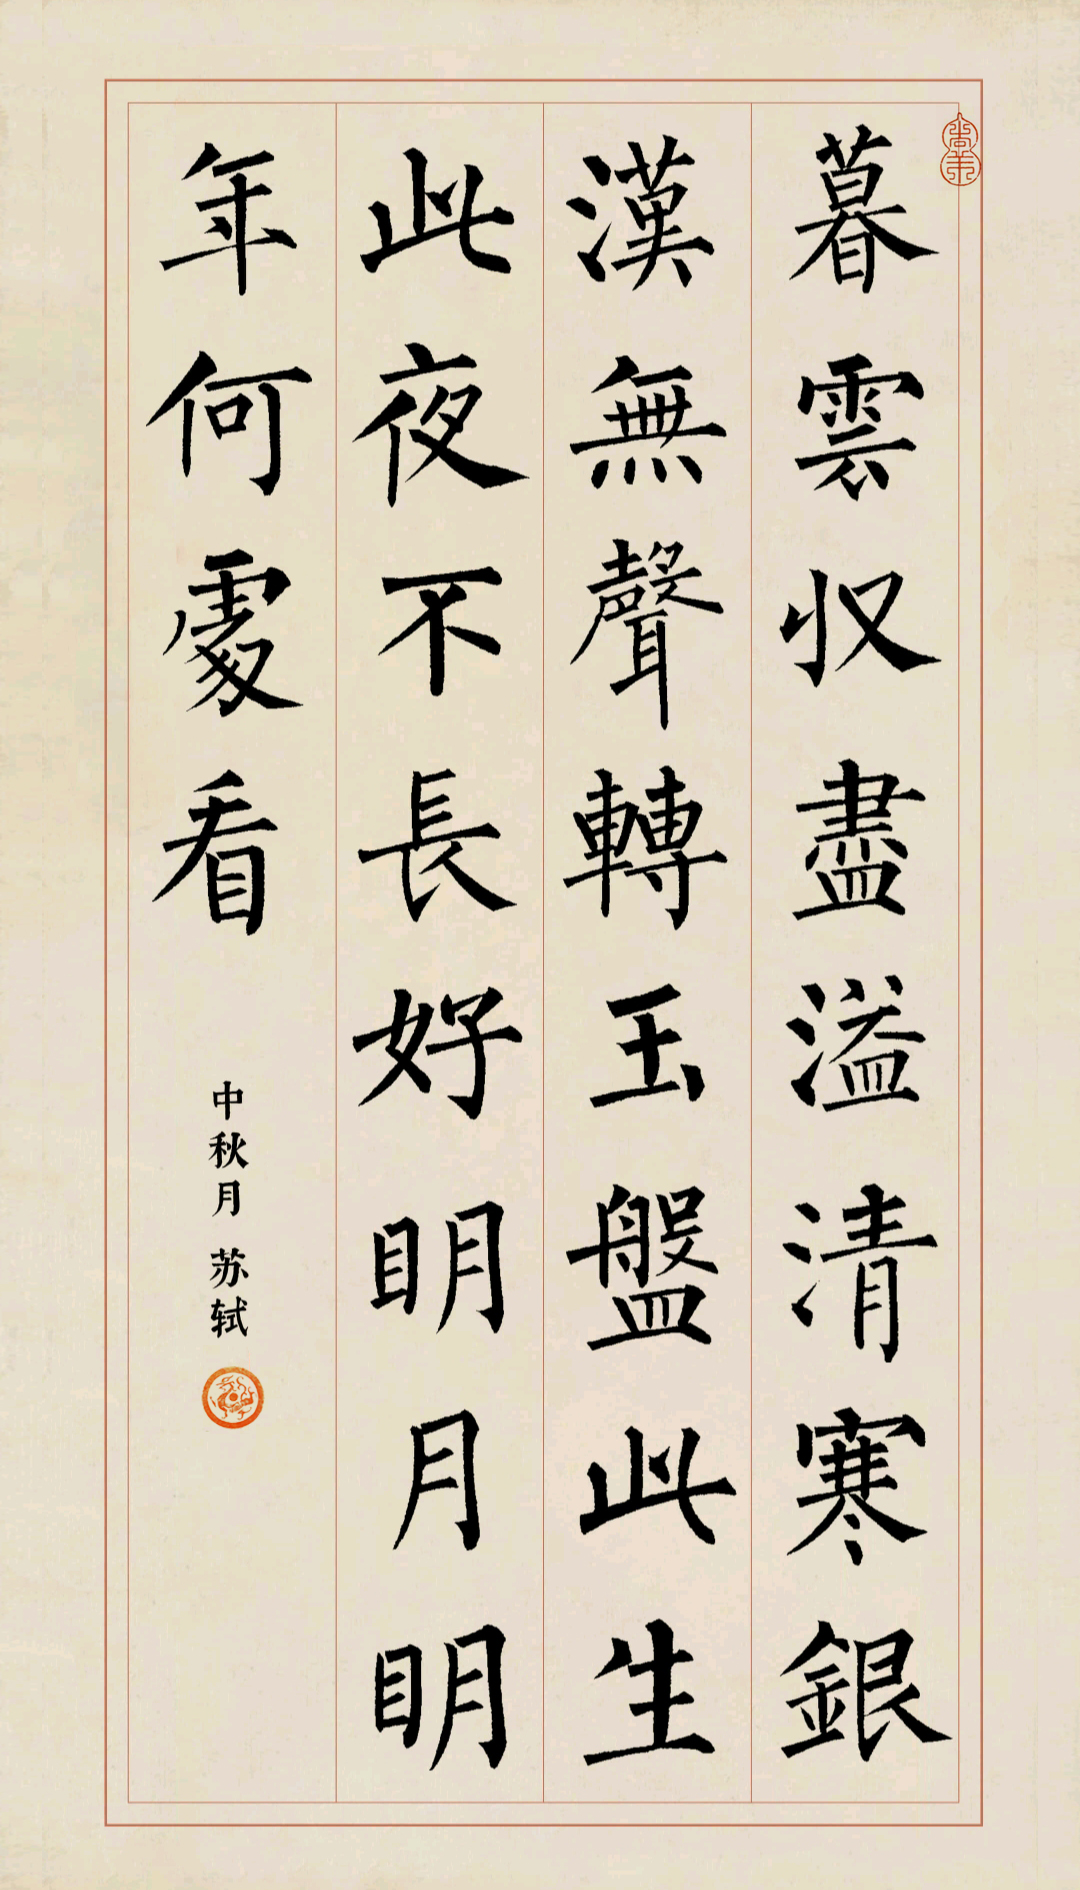 暮雲收盡溢清寒銀
漢無聲轉玉盤此生
此夜不長好明月明
年何處看
中秋月 苏轼